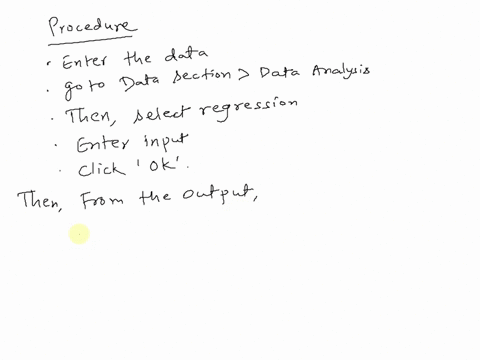 Procedure
· Enter the data
· go to Data Section > Data Analysis
· Then, select regression
· Enter input
· Click 'OK'.
Then, From the output,